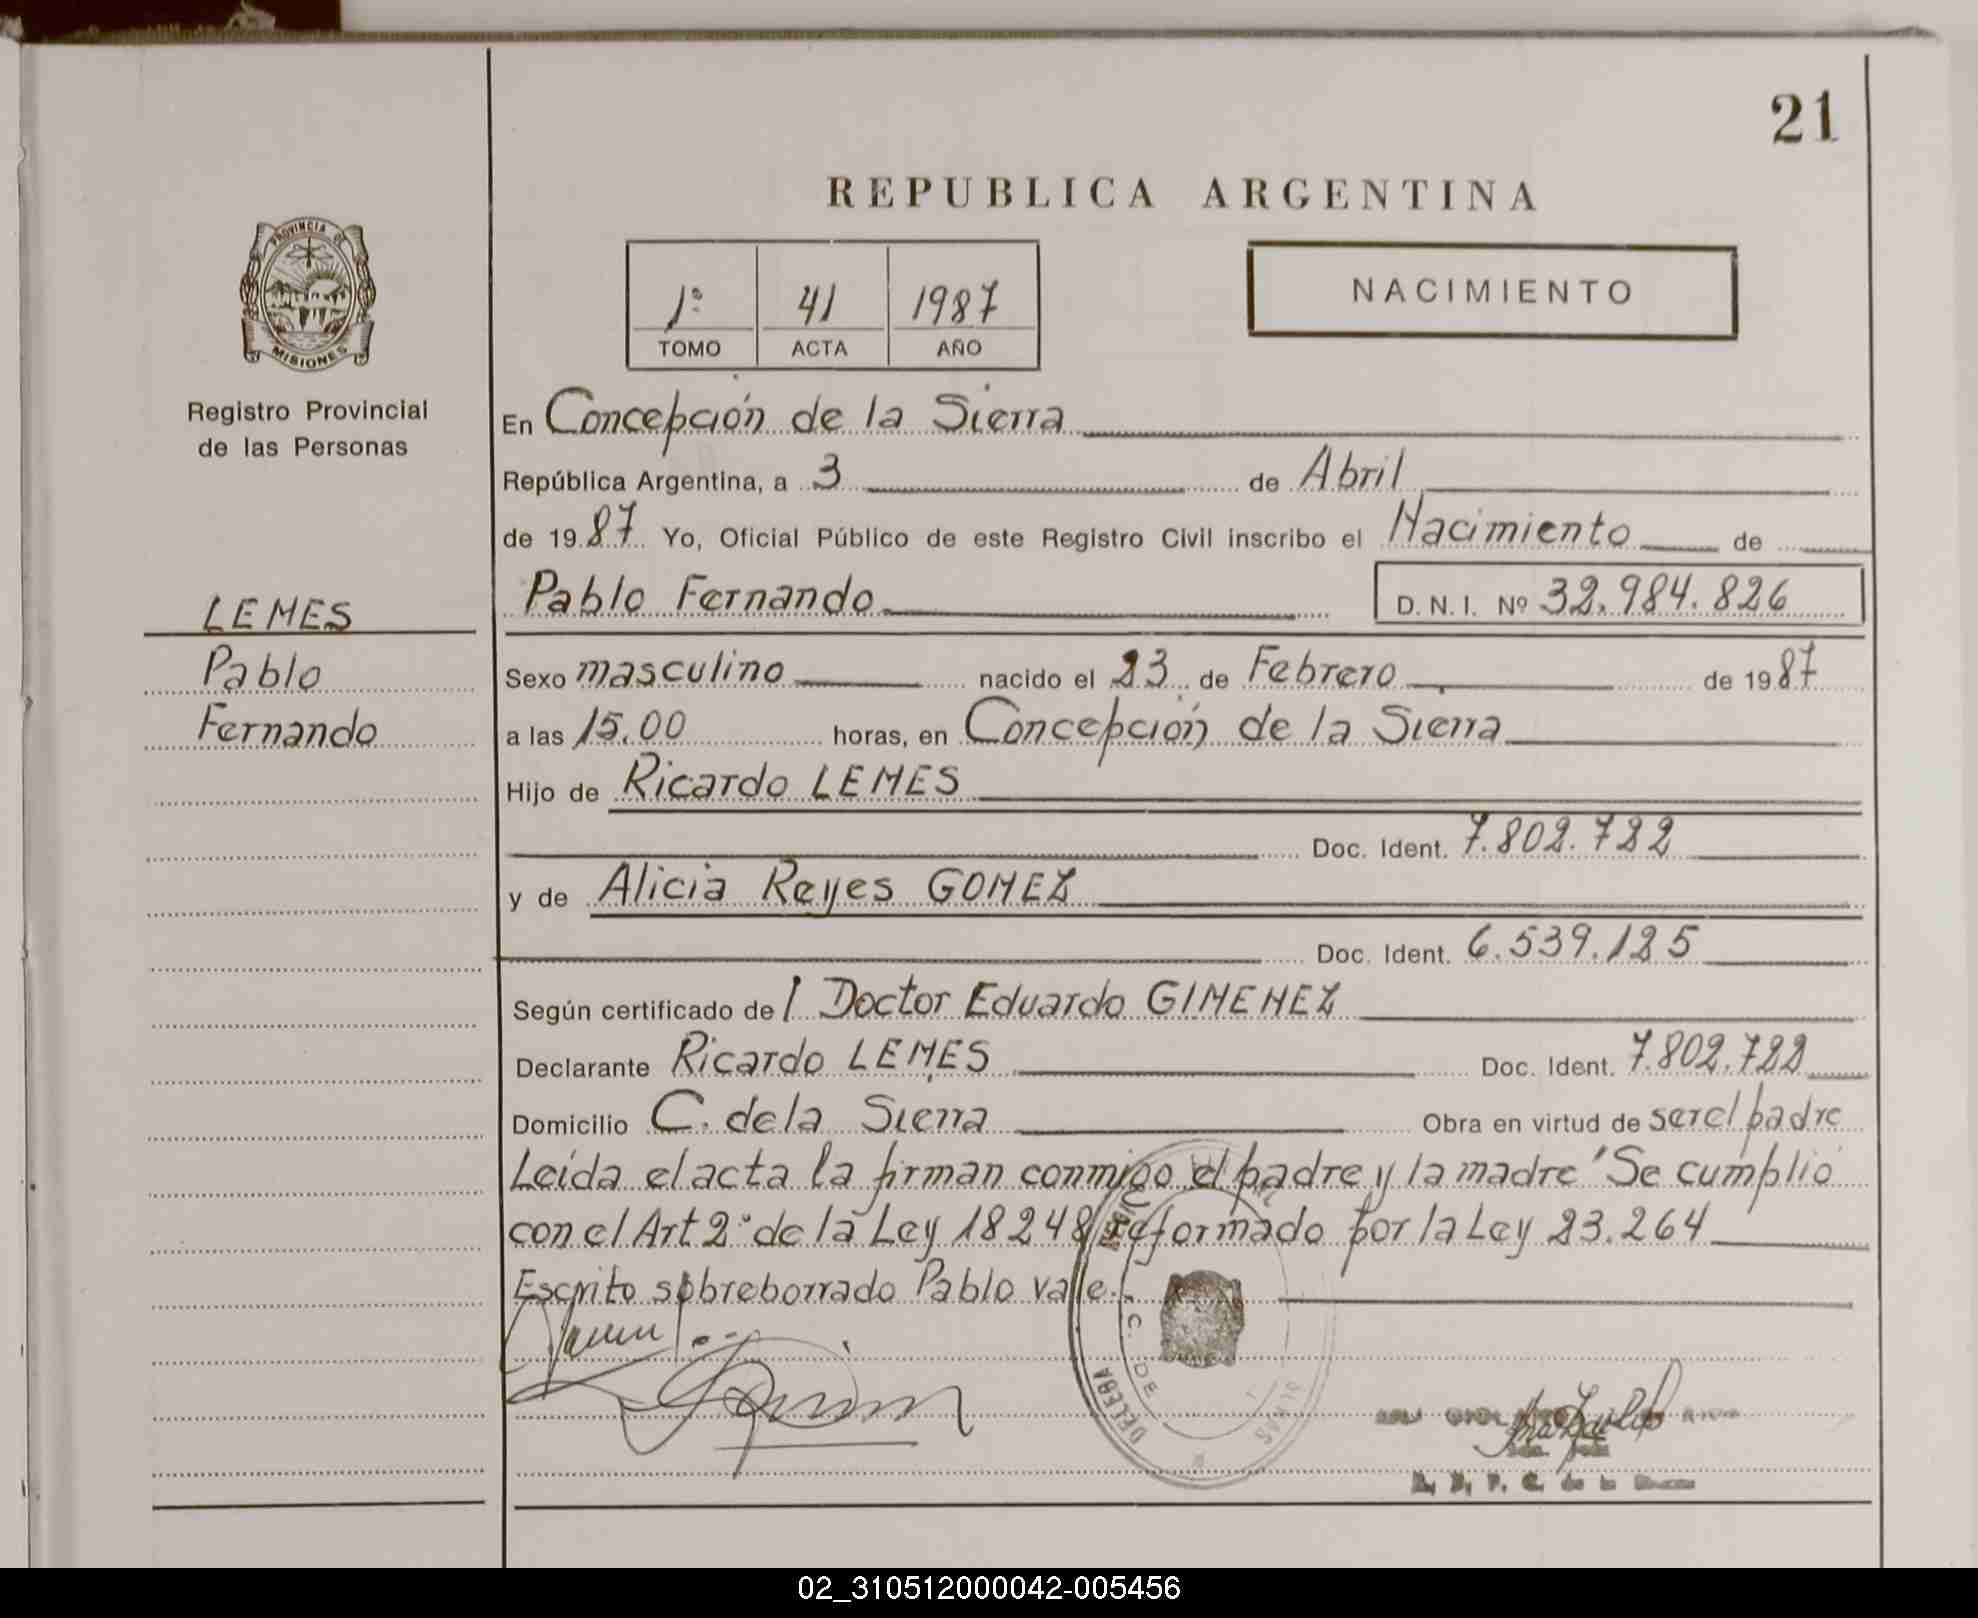 21
REPUBLICA ARGENTINA
PROVINCIA DE
MISIONES
Registro Provincial
de las Personas
1º 41 1987
TOMO ACTA AÑO
NACIMIENTO
En Concepción de la Sierra
República Argentina, a 3 de Abril
de 1987 Yo, Oficial Público de este Registro Civil inscribo el Nacimiento de
Pablo Fernando D. N. I. Nº 32.984.826
LEMES
Pablo
Fernando
Sexo masculino nacido el 23 de Febrero de 1987
a las 15.00 horas, en Concepción de la Sierra
Hijo de Ricardo LEMES
Doc. Ident. 7.802.722
y de Alicia Reyes GOMEZ
Doc. Ident. 6.539.125
Según certificado de l Doctor Eduardo GIMENEZ
Declarante Ricardo LEMES Doc. Ident. 7.802.722
Domicilio C. de la Sierra Obra en virtud de ser el padre
Leída el acta la firman conmigo el padre y la madre "Se cumplió
con el Art 2º de la Ley 18248 reformado por la Ley 23.264
Escrito sobreborrado Pablo vale.
C. DE
02_310512000042-005456